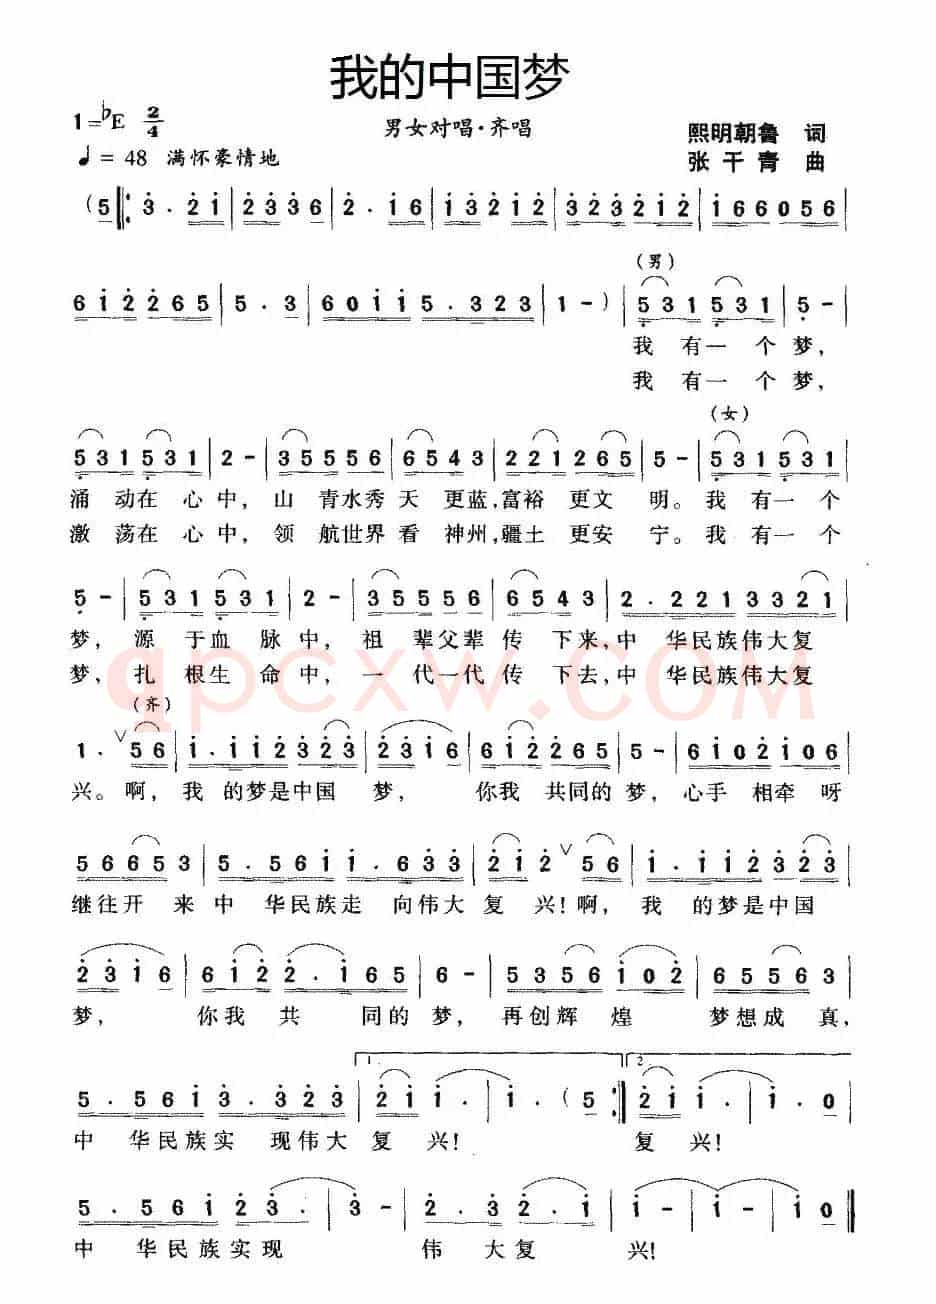 我的中国梦
1=♭E 2/4
男女对唱·齐唱
熙明朝鲁 词
♩= 48 满怀豪情地
张千青 曲
(5 ‖: 3 . 2 1 | 2 3 3 6 | 2 . 1 6 | 1 3 2 1 2 | 3 2 3 2 1 2 | 1 6 6 0 5 6 |
(男)
6 1 2 2 6 5 | 5 . 3 | 6 0 1 1 5 . 3 2 3 | 1 - ) | 5 3 1 5 3 1 | 5 - |
我 有一 个 梦,
我 有一 个 梦,
(女)
5 3 1 5 3 1 | 2 - | 3 5 5 5 6 | 6 5 4 3 | 2 2 1 2 6 5 | 5 - | 5 3 1 5 3 1 |
涌 动在 心 中, 山 青水秀 天 更蓝,富裕 更文 明。我 有一 个
激 荡在 心 中, 领 航世界 看 神州,疆土 更安 宁。我 有一 个
5 - | 5 3 1 5 3 1 | 2 - | 3 5 5 5 6 | 6 5 4 3 | 2 . 2 2 1 3 3 2 1 |
梦, 源 于血 脉 中, 祖 辈父辈 传 下来,中 华民族伟大复
梦, 扎 根生 命 中, 一 代一代 传 下去,中 华民族伟大复
(齐)
1 . ∨ 5 6 | 1 . 1 1 2 3 2 3 | 2 3 1 6 | 6 1 2 2 6 5 | 5 - | 6 1 0 2 1 0 6 |
兴。啊, 我 的梦是中国 梦, 你我 共同的 梦, 心手 相牵 呀
5 6 6 5 3 | 5 . 5 6 1 1 . 6 3 3 | 2 1 2 ∨ 5 6 | 1 . 1 1 2 3 2 3 |
继往开 来 中 华民族走 向伟大 复 兴! 啊, 我 的梦是中国
2 3 1 6 | 6 1 2 2 . 1 6 5 | 6 - | 5 3 5 6 1 0 2 | 6 5 5 6 3 |
梦, 你我 共 同的 梦, 再创辉 煌 梦想成 真,
1. 2.
5 . 5 6 1 3 . 3 2 3 | 2 1 1 . | 1 . ( 5 :‖ 2 1 1 . | 1 . 0 |
中 华民族实 现伟大 复 兴! 复 兴!
5 . 5 6 1 2 3 . | 3 - | 2 . 3 2 2 . 1 | 1 - | 1 - | 1 0 ‖
中 华民族实现 伟 大复 兴!
qpcxw.com